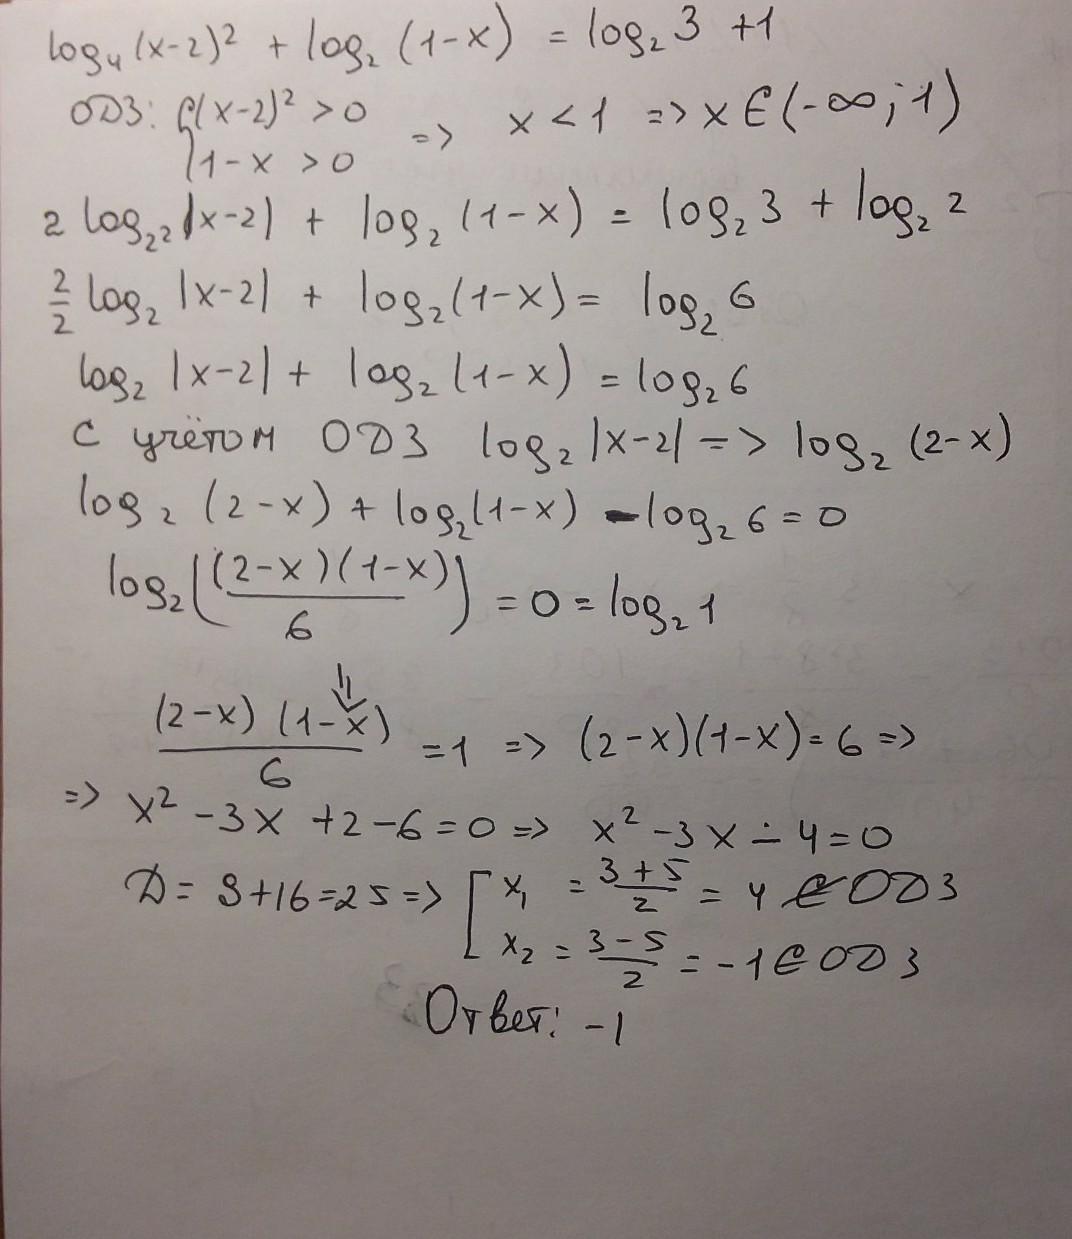 log₄(x-2)² + log₂(1-x) = log₂3 +1
ОДЗ: {(x-2)² > 0
{1-x > 0 => x < 1 => x ∈ (-∞; 1)
2 log₂₂|x-2| + log₂(1-x) = log₂3 + log₂2
2/2 log₂|x-2| + log₂(1-x) = log₂6
log₂|x-2| + log₂(1-x) = log₂6
С учётом ОДЗ log₂|x-2| => log₂(2-x)
log₂(2-x) + log₂(1-x) - log₂6 = 0
log₂((2-x)(1-x)/6) = 0 = log₂1
⇓
(2-x)(1-x)/6 = 1 => (2-x)(1-x) = 6 =>
=> x² - 3x + 2 - 6 = 0 => x² - 3x - 4 = 0
Д = 9+16=25 => [x₁ = (3+5)/2 = 4 ∉ ОДЗ
[x₂ = (3-5)/2 = -1 ∈ ОДЗ
Ответ: -1